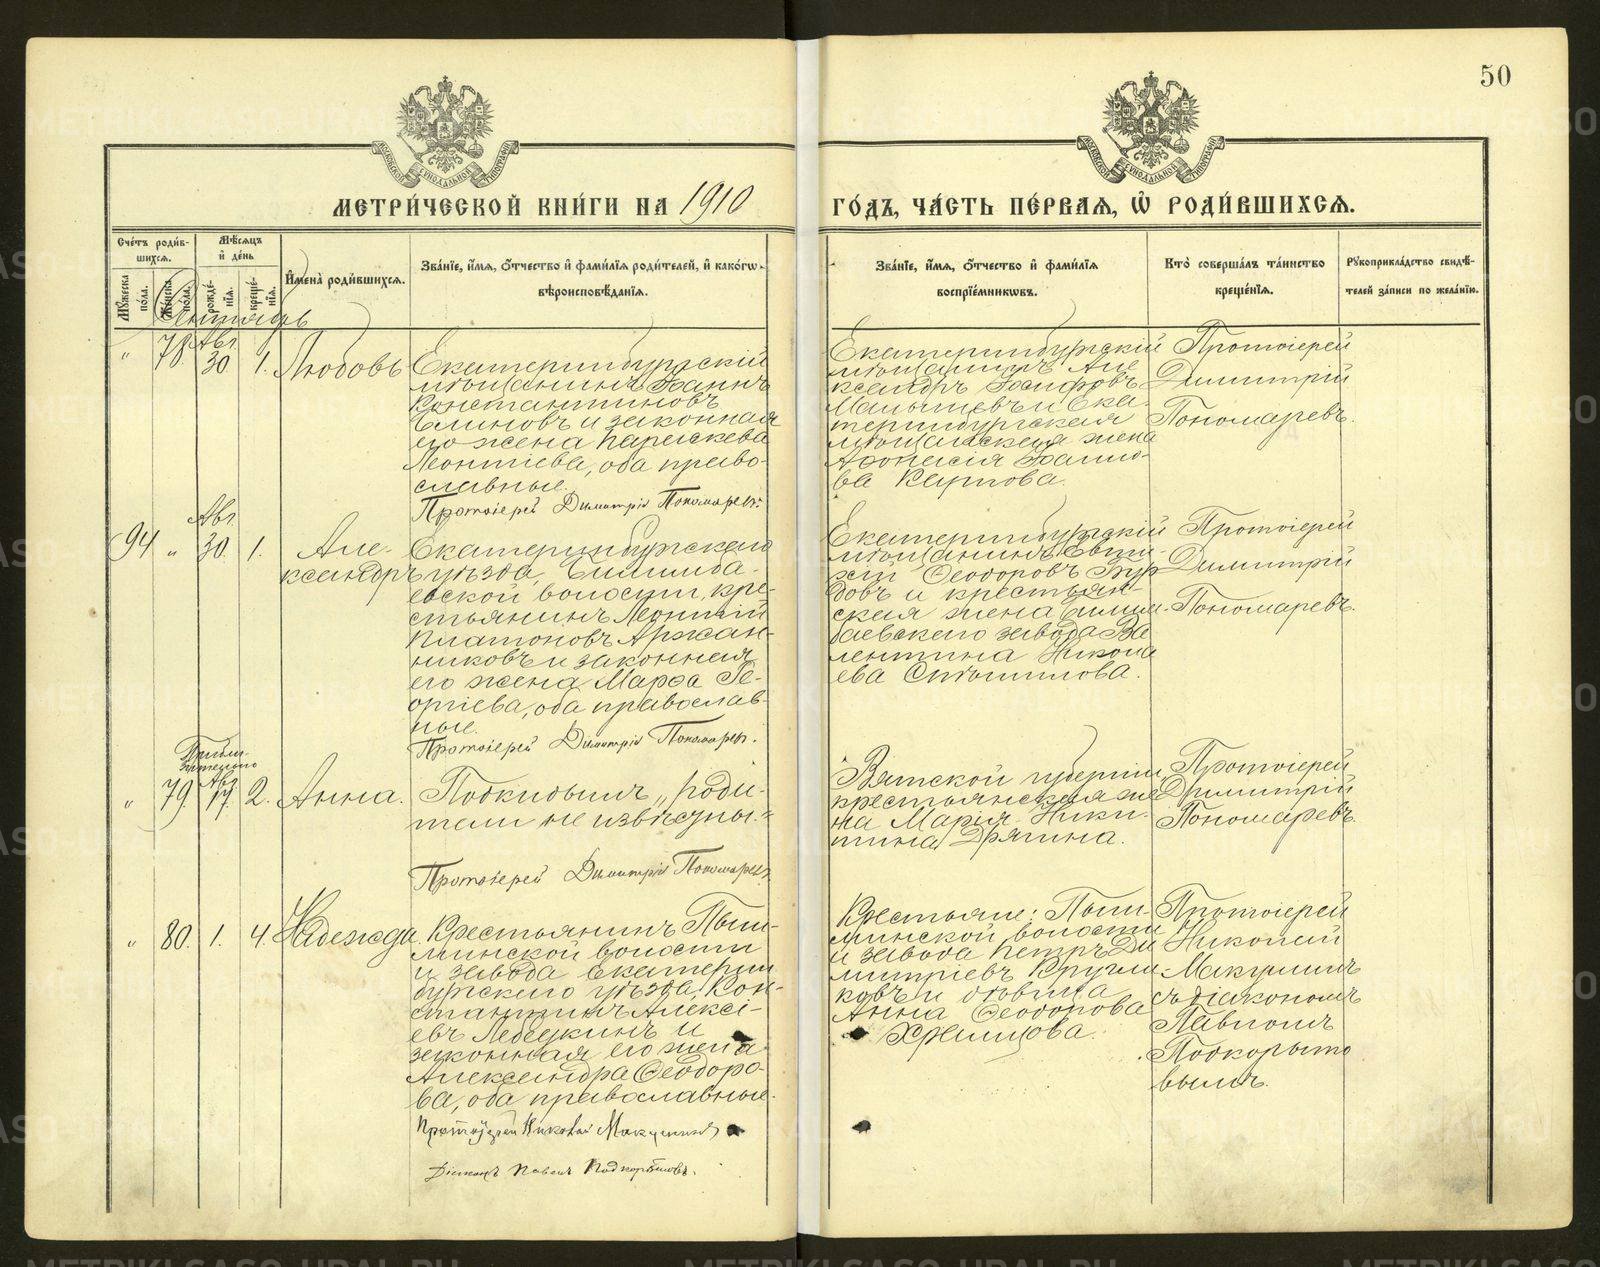 50
МЕТРИ́ЧЕСКОЙ КНИ́ГИ НА 1910
ГО́ДЪ, ЧА́СТЬ ПЕ́РВАЯ, Ѡ҆ РОДИ́ВШИХСѦ.
Сче́тъ роди́в-
шихсѧ.
Мѣ́сѧцъ
и҆ де́нь
Мꙋ́жеска
по́ла.
Же́нска
по́ла.
рожде́-
нїѧ.
креще́-
нїѧ.
И҆мена̀ роди́вшихсѧ.
Зва́нїе, и҆́мѧ, ѻ҆́тчество и҆ фами́лїѧ роди́телей, и҆ како́гѡ
вѣроисповѣ́данїѧ.
Зва́нїе, и҆́мѧ, ѻ҆́тчество и҆ фами́лїѧ
воспрїе́мникѡвъ.
Кто̀ соверша́лъ та́инство
креще́нїѧ.
Рꙋкоприкла́дство свидѣ́-
телей за́писи по жела́нїю.
Сентябрь
„ 78. Авг. 30. 1. Любовь
Екатеринбургскiй
мѣщанинъ Іоаннъ
Константиновъ
Блиновъ и законная
его жена Параскева
Леонтiева, оба право-
славные.
Протоiерей Димитрiй Пономаревъ.
Екатеринбургскiй
мѣщанинъ Але
ксандръ Іосифовъ
Малышевъ и Ека-
теринбургская
мѣщанская жена
Аѳонасiя Іоанно-
ва Карпова.
Протоiерей
Димитрiй
Пономаревъ.
94 „ Авг. 30. 1. Але-
ксандръ
Екатеринбургскаго
уѣзда, Билимба-
евской волости, кре-
стьянинъ Леонтiй
Платоновъ Аржан-
никовъ и законная
его жена Марѳа Ге-
оргiева, оба православ-
ные.
Протоiерей Димитрiй Пономаревъ.
Екатеринбургскiй
мѣщанинъ Евти-
хiй Ѳеодоровъ Зур
довъ и крестьян-
ская жена Билим-
баевскаго завода Ва
лентина Никола
ева
Протоiерей
Димитрiй
Пономаревъ.
Прибли-
зительно
„ 79. Авг. 17. 2. Анна.
Подкидышъ, „роди-
тели не извѣстны.“
Протоiерей Димитрiй Пономаревъ.
Вятской губернiи
крестьянская же
на Марiя Ники-
тина Дрягина.
Протоiерей
Димитрiй
Пономаревъ.
„ 80. 1. 4. Надежда
Крестьянинъ Пыш-
минской волости
и завода Екатерин
бургскаго уѣзда, Кон-
стантинъ Алексѣ-
евъ Лебедкинъ и
законная его жена
Александра Ѳеодоро-
ва, оба православные.
Протоiерей Николай Макушинъ
Дiаконъ Павелъ Подкорытовъ.
Крестьяне: Пыш-
минской волости
и завода Петръ Ди
митрiевъ Кругли
ковъ и дѣвица
Анна Ѳеодорова
Хрѣмцова.
Протоiерей
Николай
Макушинъ
съ дiакономъ
Павломъ
Подкорыто
вымъ.